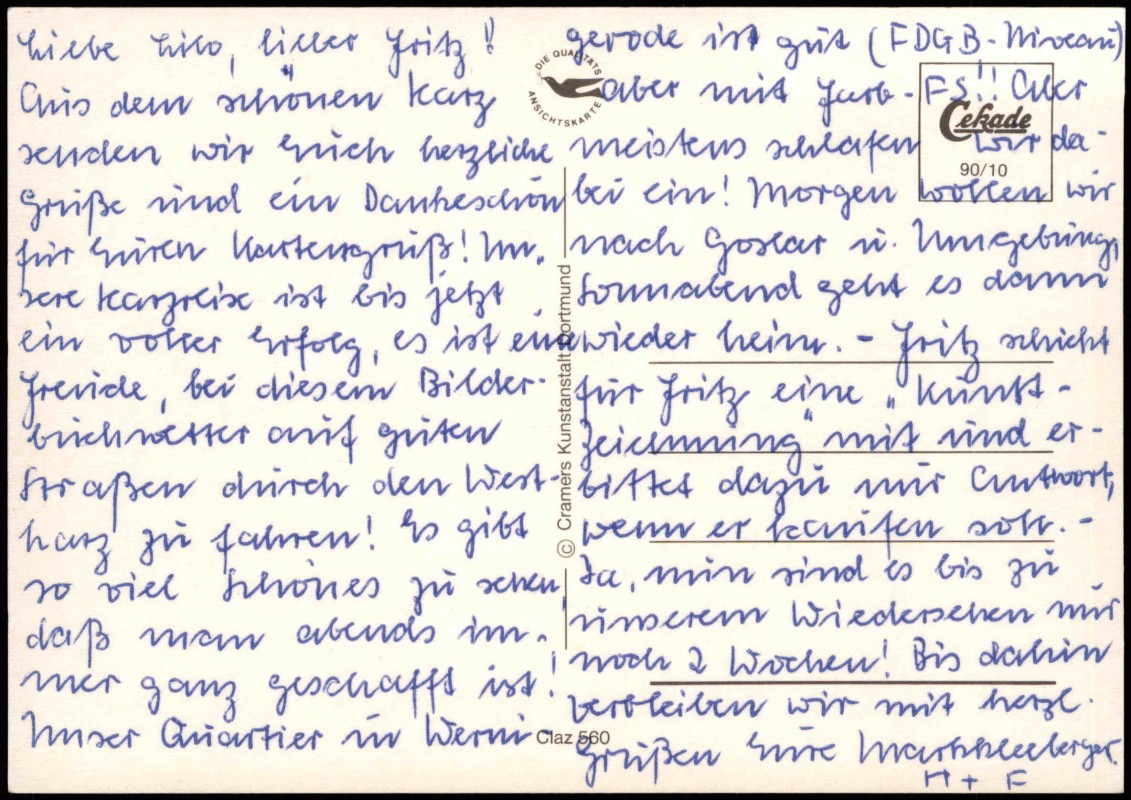 Liebe Lilo, lieber Fritz!
Aus dem schönen Harz
senden wir Euch herzliche
Grüße und ein Dankeschön
für Euren Kartengruß! Un-
sere Harzreise ist bis jetzt
ein voller Erfolg, es ist eine
Freude, bei diesem Bilder-
buchwetter auf guten
Straßen durch den West-
harz zu fahren! Es gibt
so viel Schönes zu sehen,
daß man abends im-
mer ganz geschafft ist!
Unser Quartier in Werni-
gerode ist gut (FDGB-Niveau)
aber mit Farb-FS!! Aber
meistens schlafen wir da-
bei ein! Morgen wollen wir
nach Goslar u. Umgebung,
Sonnabend geht es dann
wieder heim. - Fritz schickt
für Fritz eine "Kunst-
zeichnung" mit und er-
bittet dazu nur Antwort,
wenn er kaufen soll. -
Ja, nun sind es bis zu
unserem Wiedersehen nur
noch 2 Wochen! Bis dahin
verbleiben wir mit herzl.
Grüßen Eure Markkleeberger.
H + F
DIE QUALITÄTS
ANSICHTSKARTE
Cekade
90/10
© Cramers Kunstanstalt Dortmund
Claz 560